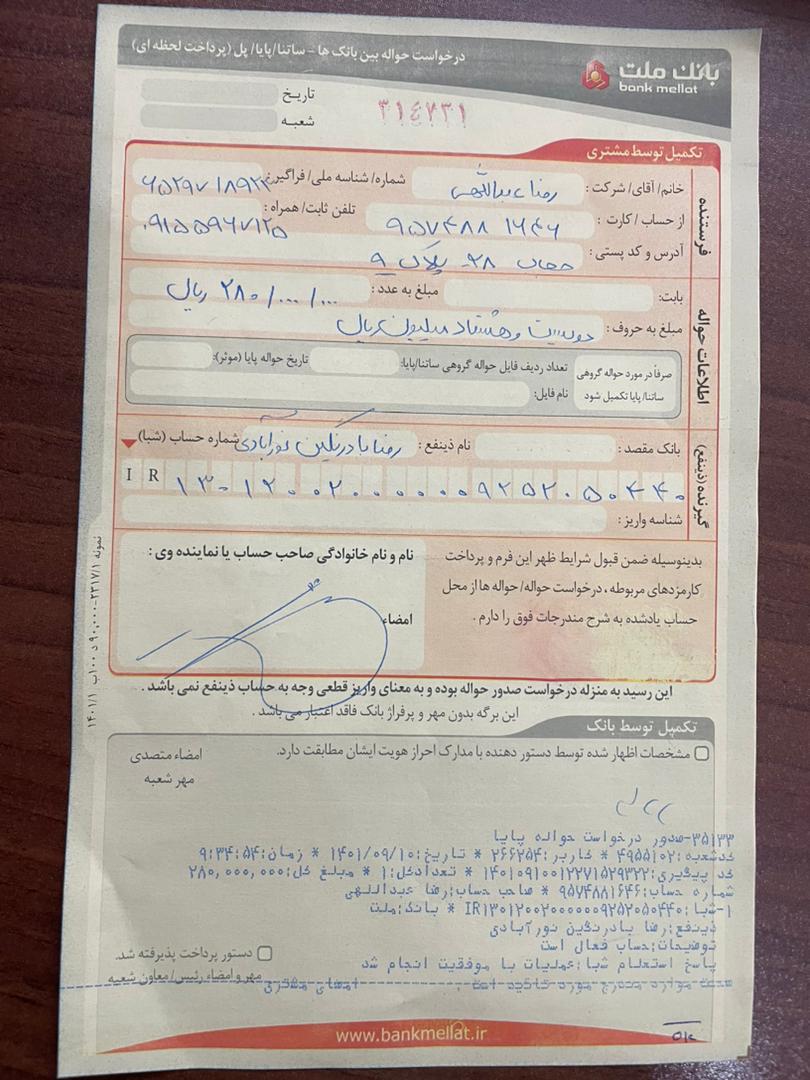 درخواست حواله بین بانک ها - ساتنا/پایا/ پل (پرداخت لحظه ای)
بانک ملت
bank mellat
تاریخ
شعبه
۳۱۴۷۳۱
تکمیل توسط مشتری
فرستنده
خانم/ آقای/ شرکت : رضا عبداللهی شماره/ شناسه ملی/ فراگیر:
از حساب/ کارت : ۹۵۷۴۸۸۱۶۴۶ تلفن ثابت/ همراه : ۰۹۱۵۵۹۶۷۱۲۵
آدرس و کد پستی : ۲۸- پلاک ۹
اطلاعات حواله
بابت: مبلغ به عدد : ۲۸۰/۰۰۰/۰۰۰ ریال
مبلغ به حروف : دویست و هشتاد میلیون ریال
صرفاً در مورد حواله گروهی ساتنا/پایا تکمیل شود
تعداد ردیف فایل حواله گروهی ساتنا/پایا: تاریخ حواله پایا (موثر):
نام فایل:
گیرنده (ذینفع)
بانک مقصد : نام ذینفع : رضا بادرنگین نورآبادی شماره حساب (شبا)
IR ۱۳۰۱۲۰۰۲۰۰۰۰۰۰۹۲۵۲۰۵۰۴۴۰
شناسه واریز :
بدینوسیله ضمن قبول شرایط ظهر این فرم و پرداخت
کارمزدهای مربوطه ، درخواست حواله/ حواله ها از محل
حساب یادشده به شرح مندرجات فوق را دارم .
نام و نام خانوادگی صاحب حساب یا نماینده وی :
امضاء
این رسید به منزله درخواست صدور حواله بوده و به معنای واریز قطعی وجه به حساب ذینفع نمی باشد .
این برگه بدون مهر و پرفراژ بانک فاقد اعتبار می باشد .
تکمیل توسط بانک
مشخصات اظهار شده توسط دستور دهنده با مدارک احراز هویت ایشان مطابقت دارد.
امضاء متصدی
مهر شعبه
۳۵۱۳۳-صدور درخواست حواله پایا
کدشعبه:۴۹۵۵۱۰۲ * کاربر:۲۶۶۲۵۴ * تاریخ:۱۴۰۱/۰۹/۱۰ * زمان:۹:۳۴:۵۴
کد پیگیری:۱۴۰۱۰۹۱۰۰۱۲۲۷۱۵۲۹۳۲۲ * تعدادکل:۱ * مبلغ کل:۲۸۰,۰۰۰,۰۰۰
شماره حساب:۹۵۷۴۸۸۱۶۴۶ * صاحب حساب:رضا عبداللهی
۱-شبا:IR۱۳۰۱۲۰۰۲۰۰۰۰۰۰۹۲۵۲۰۵۰۴۴۰ * بانک:ملت
ذینفع:رضا بادرنگین نورآبادی
توضیحات:حساب فعال است
پاسخ استعلام شبا:عملیات با موفقیت انجام شد
صحت موارد مندرج مورد تائید است . امضای مشتری
دستور پرداخت پذیرفته شد.
مهر و امضاء رئیس/ معاون شعبه
www.bankmellat.ir
نمونه ۲۳۱۷/۱-۹۰,۰۰۰ د ۱۰۰ ب ۱۴۰۱/۱